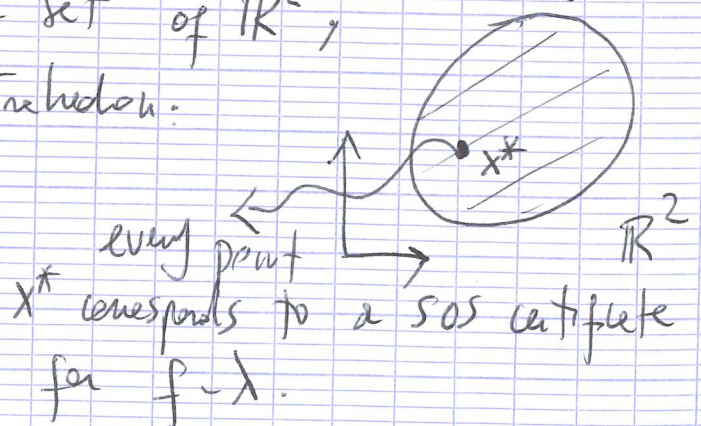 set of ℝ²,
trahedon:
x*
ℝ²
every point
x* corresponds to a SOS certificate
for f-λ.